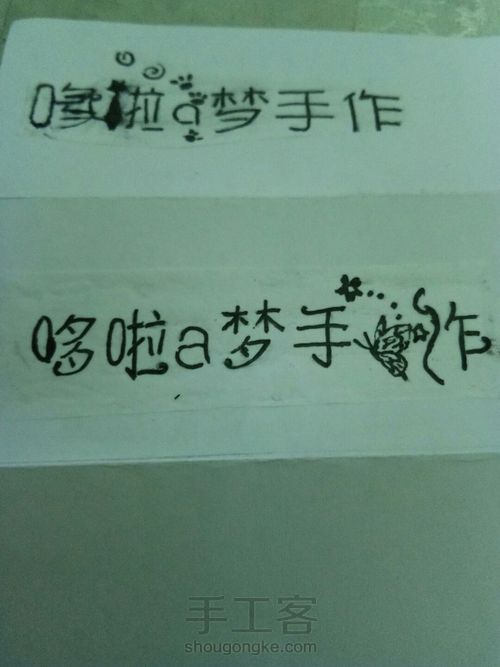 哆啦a梦手作
哆啦a梦手作
手工客
shougongke.com